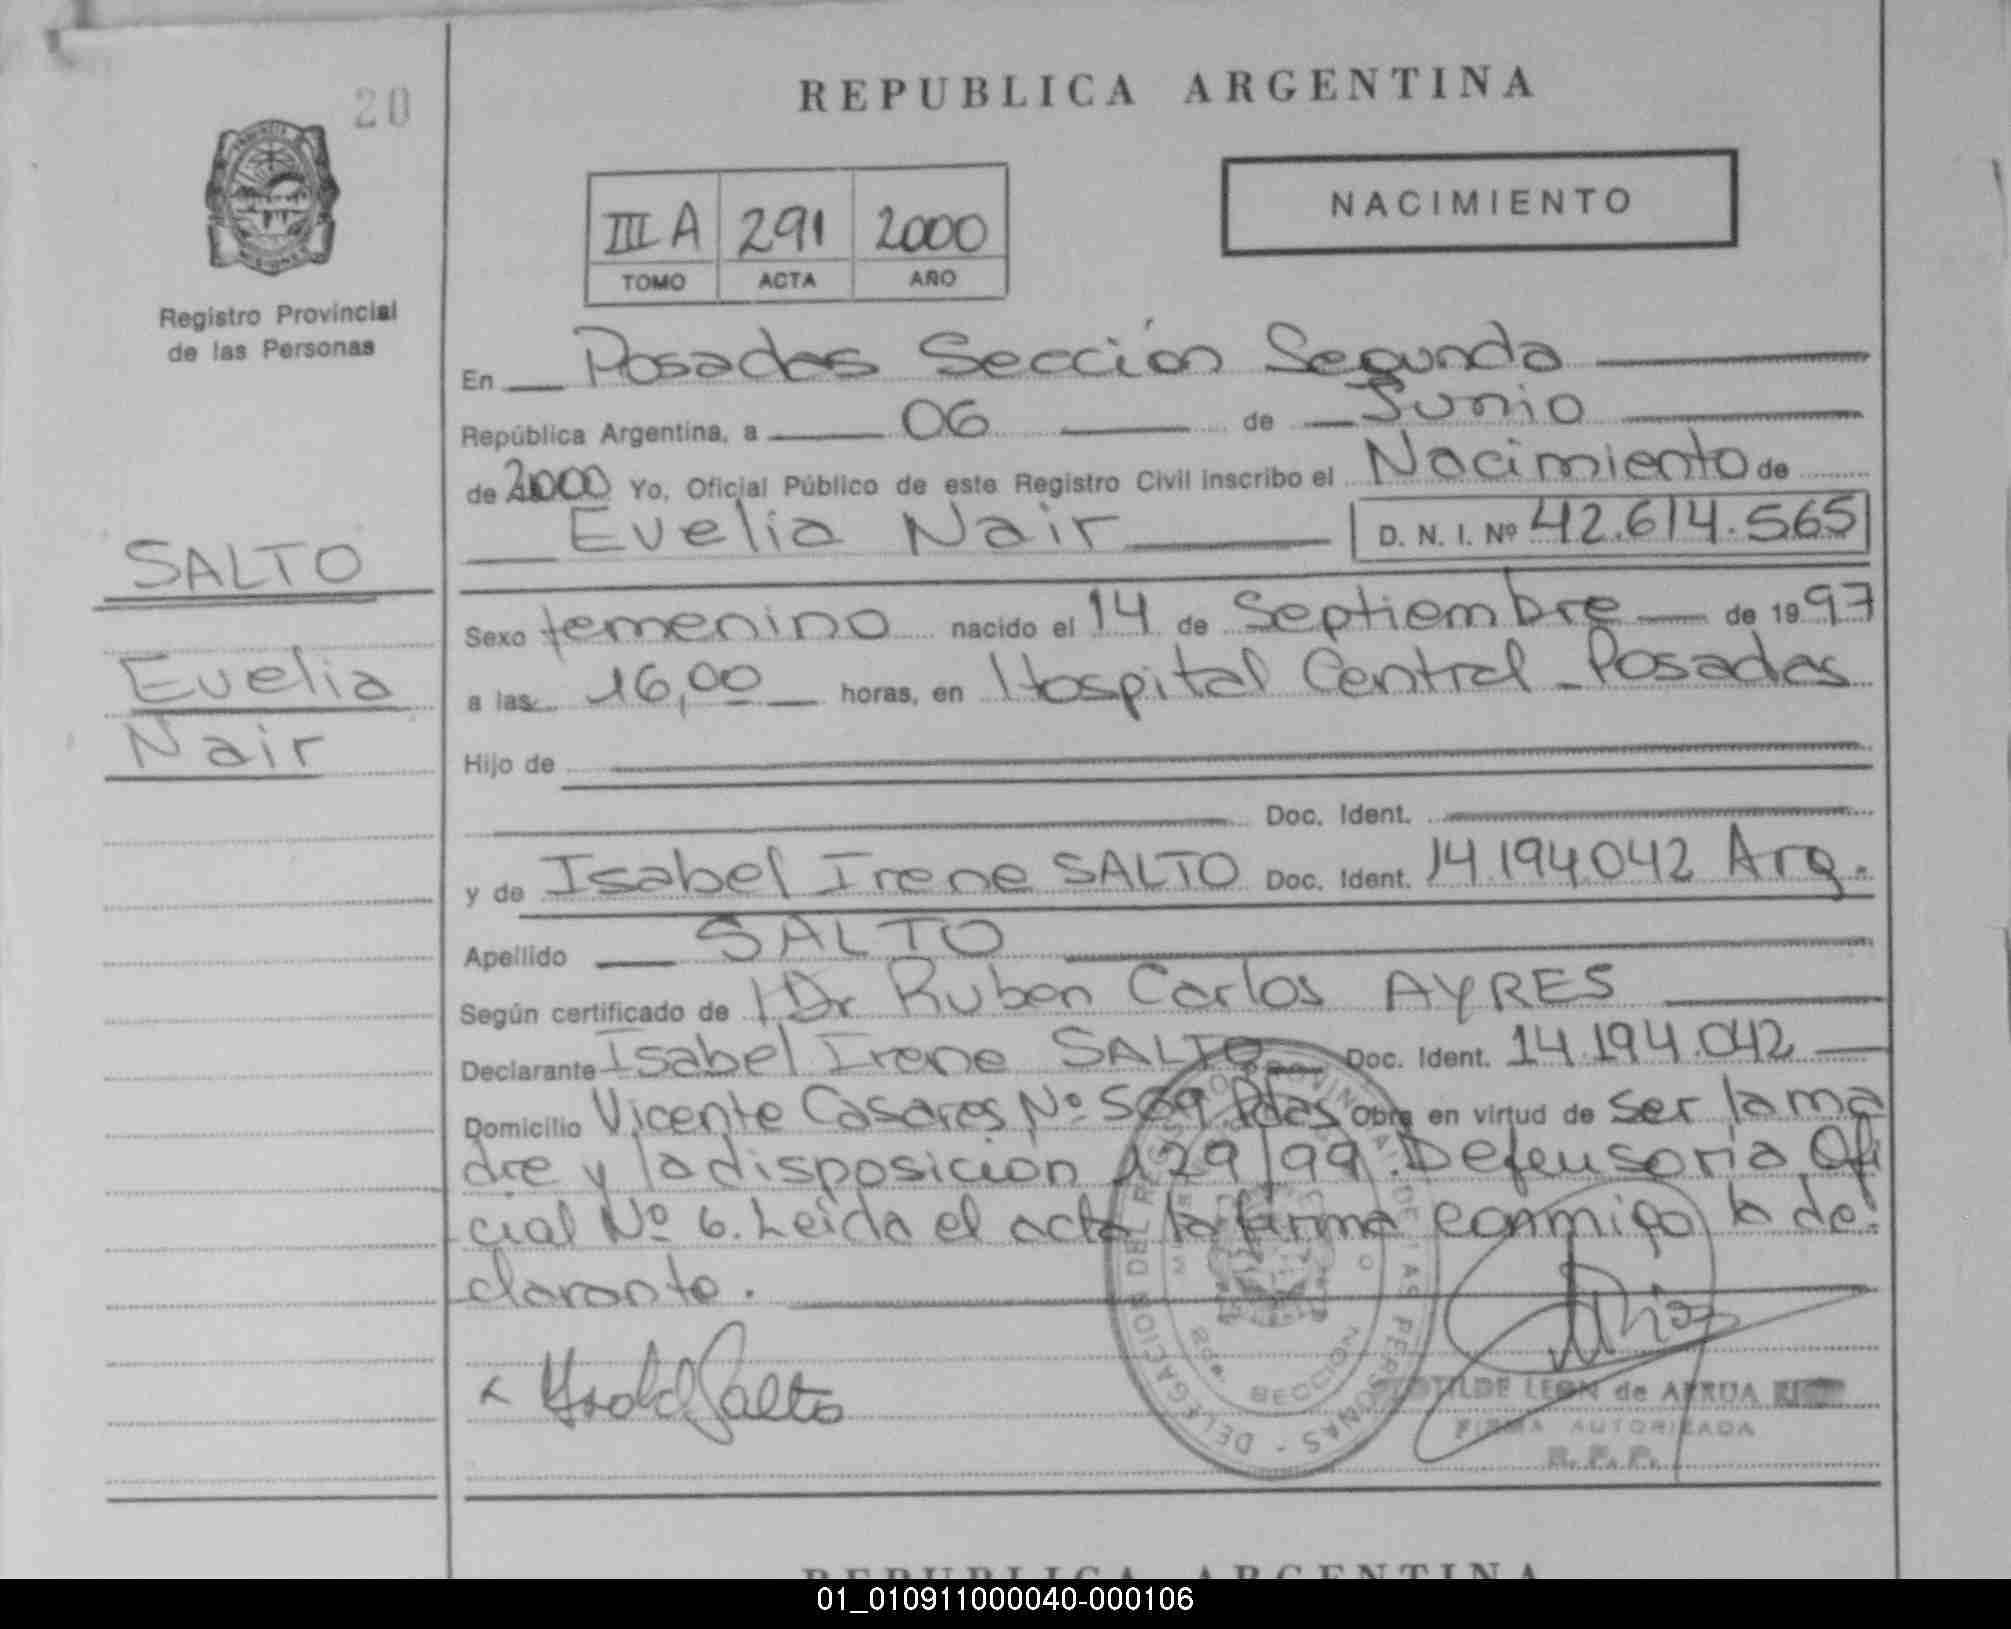 20
REPUBLICA ARGENTINA
NACIMIENTO
III A 291 2000
TOMO ACTA AÑO
Registro Provincial
de las Personas
En Posadas Sección Segunda
República Argentina, a 06 de Junio
de 2000 Yo, Oficial Público de este Registro Civil inscribo el Nacimiento de
Evelia Nair D. N. I. Nº 42.614.565
SALTO
Evelia
Nair
Sexo femenino nacido el 14 de Septiembre de 1997
a las 16,00 horas, en Hospital Central - Posadas
Hijo de
Doc. Ident.
y de Isabel Irene SALTO Doc. Ident. 14.194.042 Arg.
Apellido SALTO
Según certificado de Dr Ruben Carlos AYRES
Declarante Isabel Irene SALTO Doc. Ident. 14.194.042
Domicilio Vicente Casares Nº 509 Pdas Obra en virtud de ser la ma
dre y la disposición 129/99 Defensoria Ofi
cial Nº 6. Leida el acta la firma conmigo la de
clarante.
Salto
DELEGACION DEL REGISTRO PROVINCIAL DE LAS PERSONAS
SECCION
LEON de
FIRMA AUTORIZADA
R. P. P.
REPUBLICA ARGENTINA
01_010911000040-000106